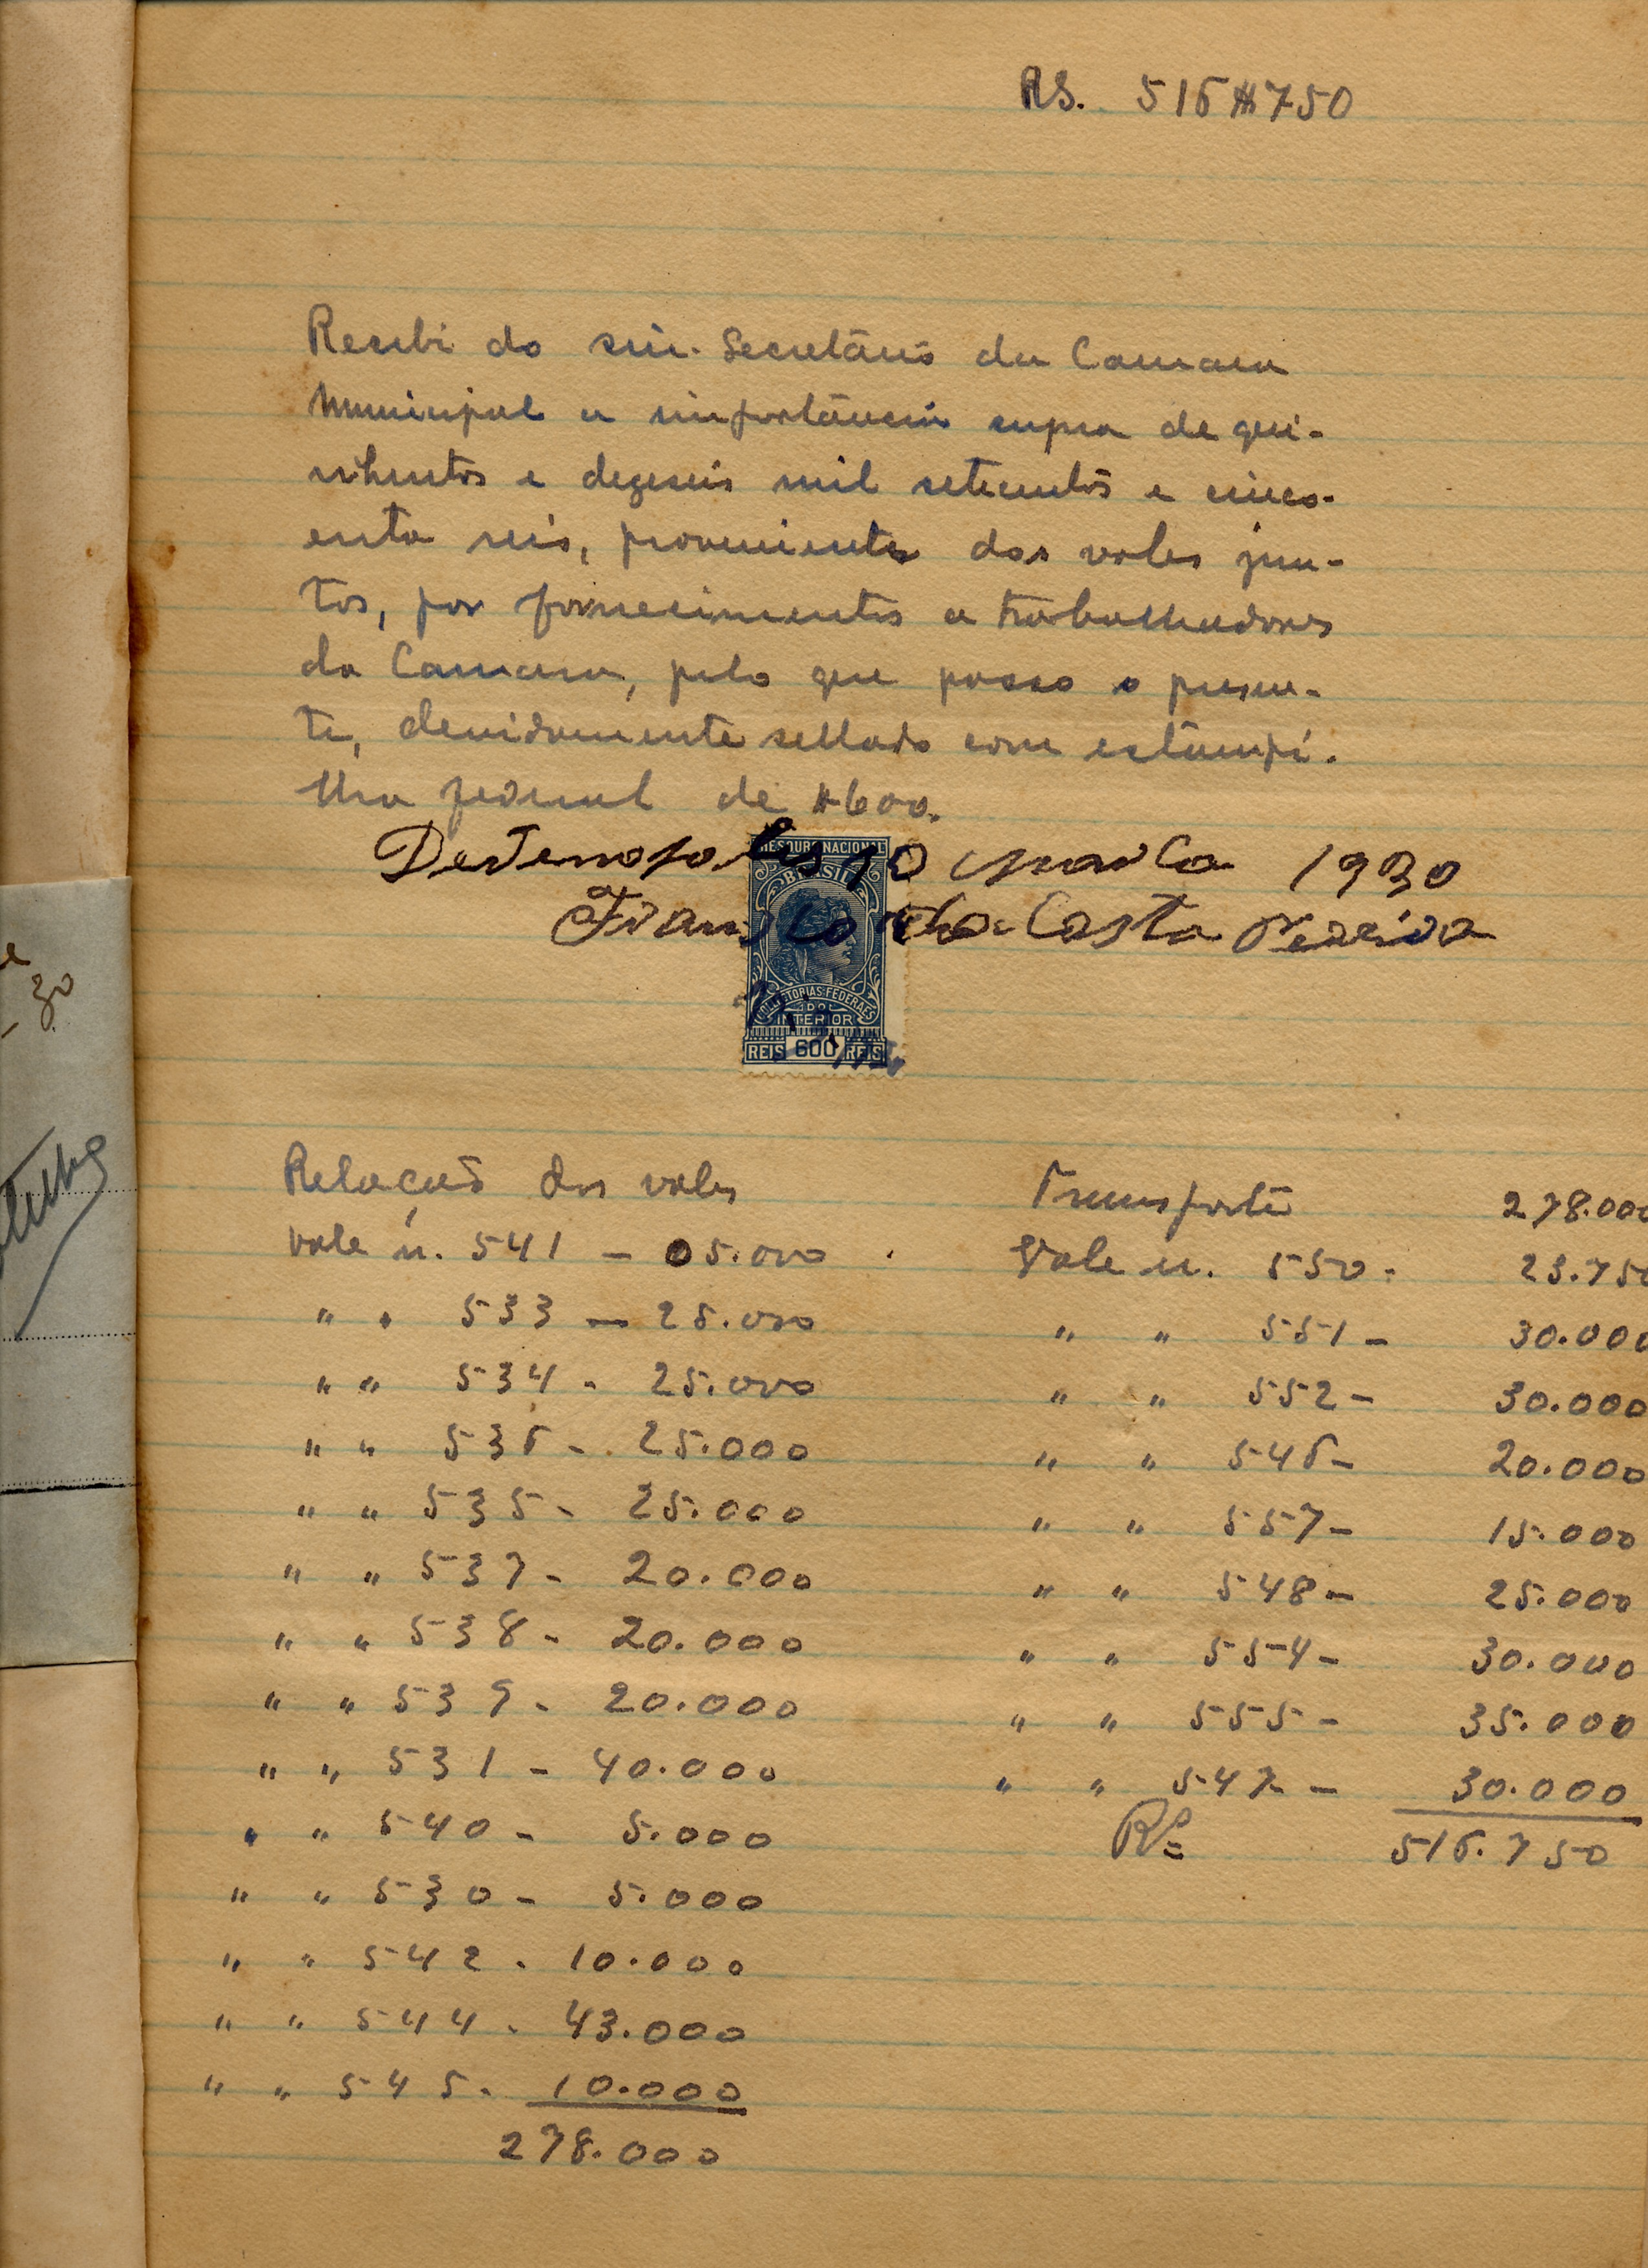 RS. 516$750
Recebi do snr. Secretário da Camara
Municipal a importância supra de qui-
nhentos e dezeseis mil setecentos e cinco-
enta reis, proveniente dos vales jun-
tos, por fornecimentos a trabalhadores
da Camara, pelo que passo o presen-
te, devidamente sellado com estampi-
lha federal de $600.
10 1930
Francisco da Costa Pereira
THESOURO NACIONAL
BRASIL
COLLECTORIAS FEDERAES
DO
INTERIOR
REIS 600 REIS
30
Relação dos vales
Vale n. 541 - 05.000
" " 533 - 25.000
" " 534 - 25.000
" " 536 - 25.000
" " 535 - 25.000
" " 537 - 20.000
" " 538 - 20.000
" " 539 - 20.000
" " 531 - 40.000
" " 540 - 5.000
" " 530 - 5.000
" " 542 - 10.000
" " 544 - 43.000
" " 545 - 10.000
278.000
Transporte 278.000
Vale n. 550 - 23.750
" " 551 - 30.000
" " 552 - 30.000
" " 546 - 20.000
" " 557 - 15.000
" " 548 - 25.000
" " 554 - 30.000
" " 555 - 35.000
" " 547 - 30.000
Rs 516.750